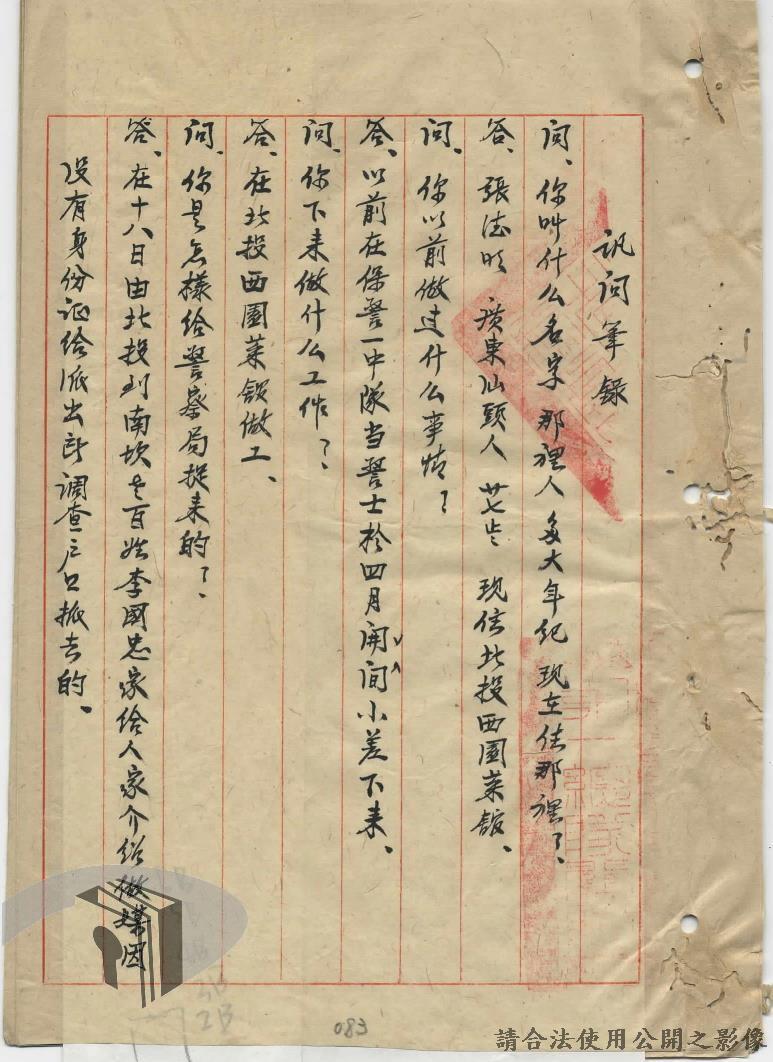 訊问筆錄
问、你叫什么名字 那裡人 多大年纪 现在住那裡？、
答、張德明 广東汕頭人 廿七岁 现住北投西園菜館、
问、你以前做过什么事情？
答、以前在保警一中隊当警士於四月间開小差下来、
问、你下来做什么工作？、
答、在北投西園菜館做工、
问、你是怎樣给警察局捉来的？、
答、在十八日由北投到南坎老百姓李國忠家给人家介绍做媒因
没有身份证给派出所调查户口抓去的、
083
請合法使用公開之影像